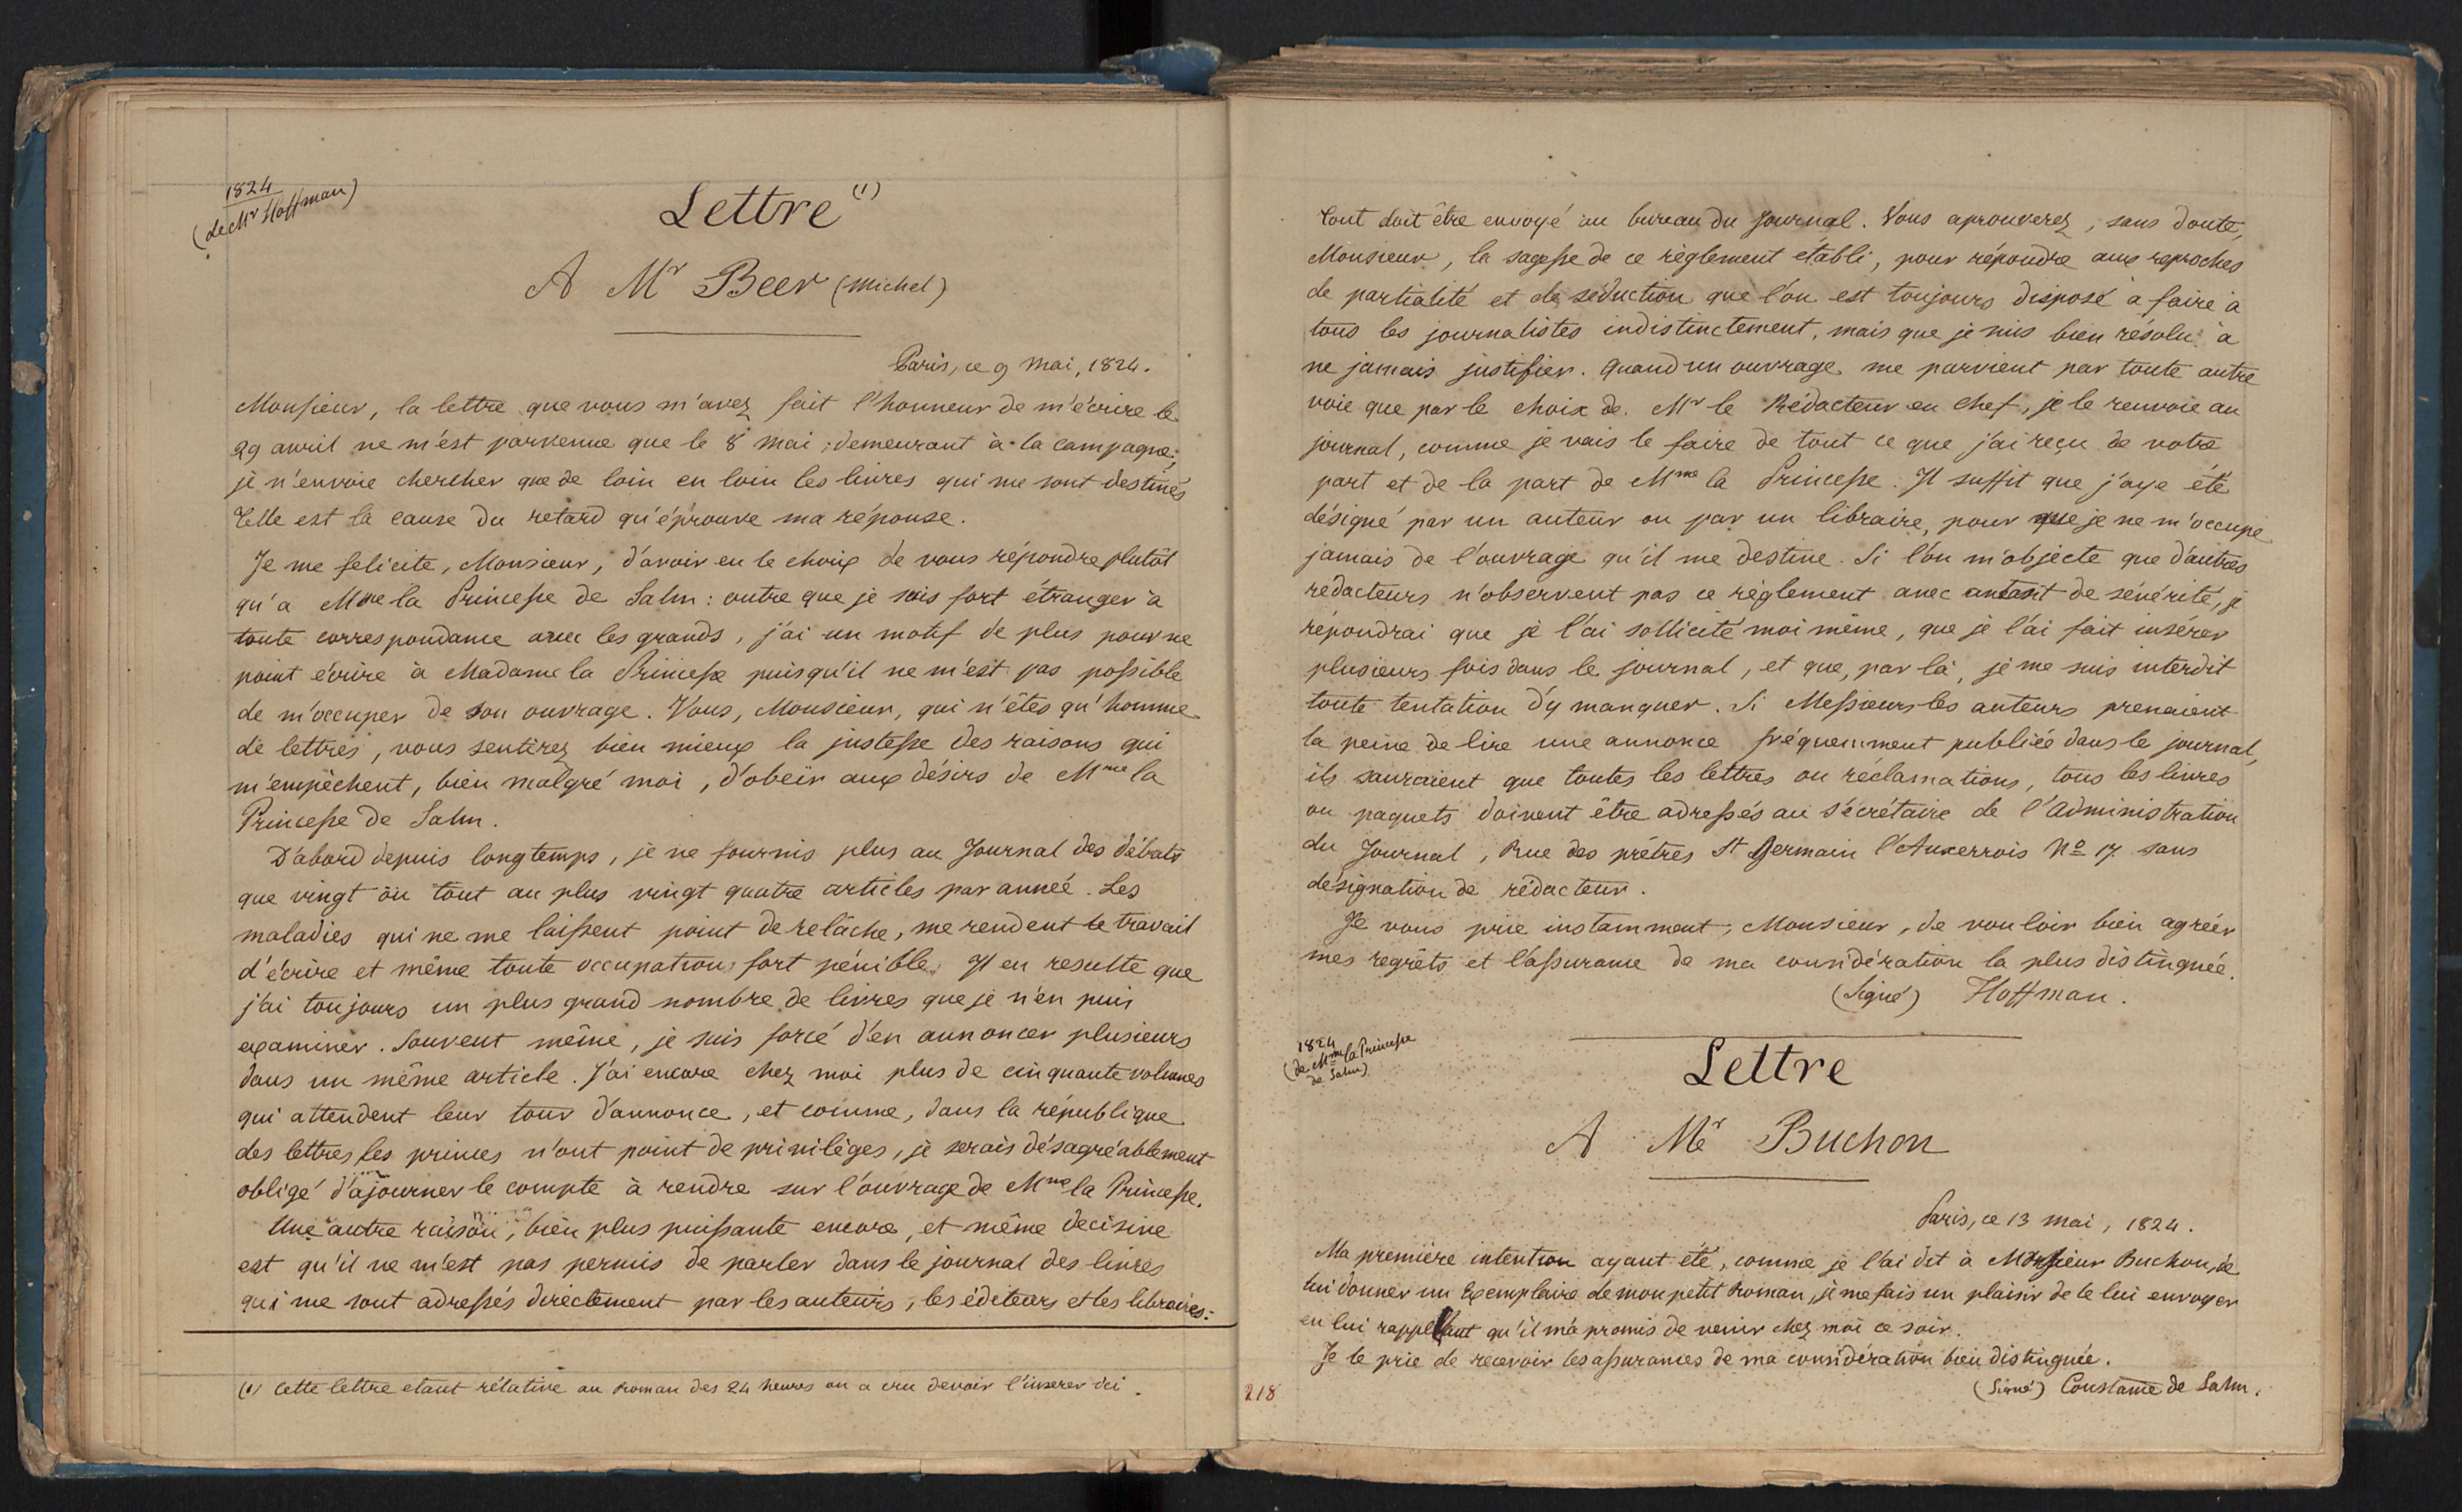 1824
(de Mr Hoffman)
Lettre (1)
A Mr Beer (Michel)
Paris, ce 9 mai, 1824.
Monsieur, la lettre que vous m'avez fait l'honneur de m'écrire le
29 avril ne m'est parvenue que le 8 mai ; demeurant à la campagne,
je n'envoie chercher que de loin en loin les livres qui me sont destinés
Telle est la cause du retard qu'éprouve ma réponse.
Je me felicite, Monsieur, d'avoir eu le choix de vous répondre plutôt
qu'a Mme la Princesse de Salm : outre que je suis fort étranger à
toute correspondance avec les grands, j'ai un motif de plus pour ne
point écrire à Madame la Princesse puisqu'il ne m'est pas possible
de m'occuper de son ouvrage. Vous, Monsieur, qui n'êtes qu'homme
de lettres, vous sentirez bien mieux la justesse des raisons qui
m'empêchent, bien malgré moi, d'obéir aux désirs de Mme la
Princesse de Salm.
D'abord depuis longtemps, je ne fournis plus au Journal des débats
que vingt ou tout au plus vingt quatre articles par année. Les
maladies qui ne me laissent point de relâche, me rendent le travail
d'écrire et même toute occupation fort pénible. Il en resulte que
j'ai toujours un plus grand nombre de livres que je n'en puis
examiner. Souvent même, je suis forcé d'en annoncer plusieurs
dans un même article. J'ai encore chez moi plus de cinquante volumes
qui attendent leur tour d'annonce, et comme, dans la république
des lettres, les princes n'ont point de privilèges, je serais désagréablement
obligé d'ajourner le compte à rendre sur l'ouvrage de Mme la Princesse.
Une autre raison, bien plus puissante encore, et même decisive
est qu'il ne m'est pas permis de parler dans le journal des livres
qui me sont adressés directement par les auteurs, les éditeurs et les libraires :
(1) Cette lettre etant rélative au Roman des 24 heures on a cru devoir l'inserer ici.
tout doit être envoyé au bureau du journal. Vous aprouverez, sans doute,
Monsieur, la sagesse de ce règlement établi, pour répondre aux reproches
de partialité et de séduction que l'on est toujours disposé à faire à
tous les journalistes indistinctement, mais que je suis bien résolu à
ne jamais justifier. Quand un ouvrage me parvient par toute autre
voie que par le choix de Mr le Rédacteur en chef, je le renvoie au
journal, comme je vais le faire de tout ce que j'ai reçu de votre
part et de la part de Mme la Princesse. Il suffit que j'aye été
désigné par un auteur ou par un libraire, pour que je ne m'occupe
jamais de l'ouvrage qu'il me destine. Si l'on m'objecte que d'autres
rédacteurs n'observent pas ce règlement avec autant de sévérité, je
répondrai que je l'ai sollicité moi même, que je l'ai fait insérer
plusieurs fois dans le journal, et que, par là, je me suis interdit
toute tentation d'y manquer. Si Messieurs les auteurs prenaient
la peine de lire une annonce fréquemment publiée dans le journal,
ils sauraient que toutes les lettres ou réclamations, tous les livres
ou paquets doivent être adressés au sécrétaire de l'administration
du Journal, Rue des prêtres St Germain l'Auxerrois No 17 sans
désignation de rédacteur.
Je vous prie instamment, Monsieur, de vouloir bien agréer
mes regrêts et l'assurance de ma considération la plus distinguée.
(Signé) Hoffman.
1824
(de Mme la Princesse
de Salm)
Lettre
A Mr Buchon
Paris, ce 13 mai, 1824.
Ma première intention ayant été, comme je l'ai dit à Monsieur Buchon, de
lui donner un Exemplaire de mon petit Roman, je me fais un plaisir de le lui envoyer
en lui rappellant qu'il m'a promis de venir chez moi ce soir.
Je le prie de recevoir les assurances de ma considération bien distinguée.
(Signé) Constance de Salm.
218